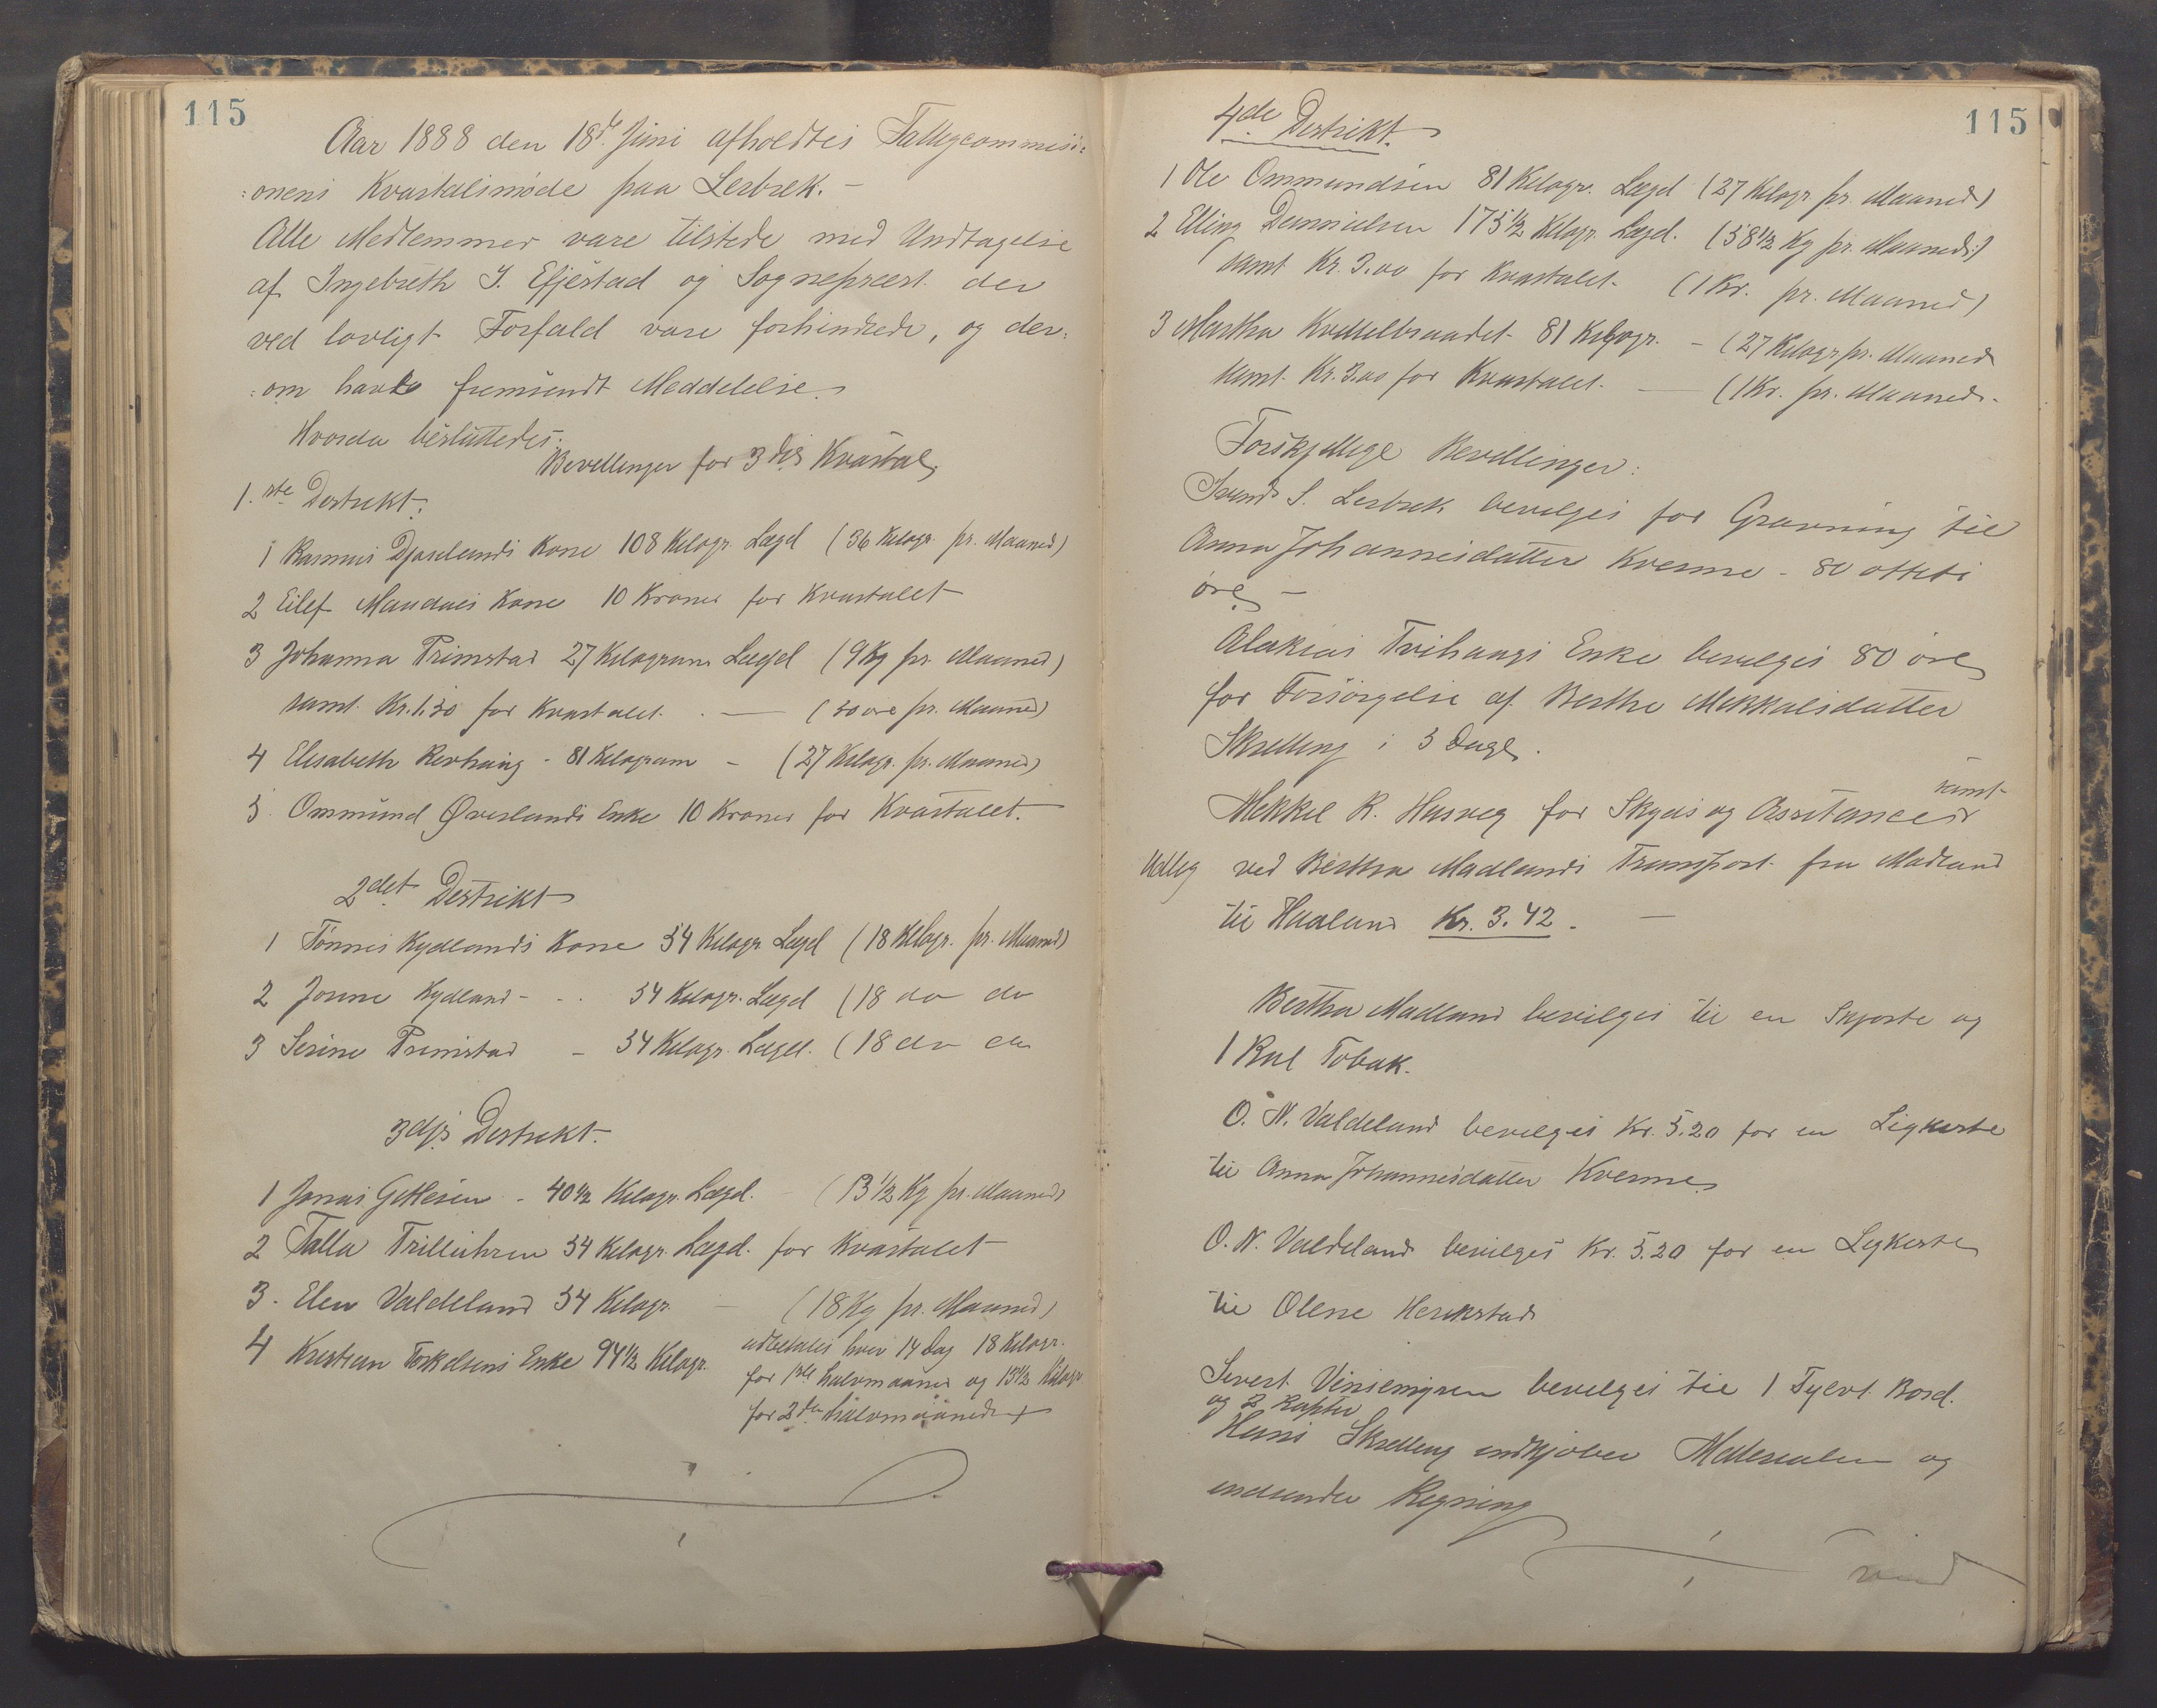 115
Aar 1888 den 18d. Juni afholdtes Fattigcommisi=
=onens Kvartalsmøde paa Lerbræk. -
Alle Medlemmer vare tilstede med Undtagelse
af Ingebreth J. Efjestad og Sognepræst. der
ved lovligt Forfald vare forhindrede, og der=
=om havde fremsendt Meddelelse.
Hvorda besluttedes:
Bevillinger for 3die Kvartal
1.ste Destrikt:
1 Rasmus Djuselands Kone 108 Kilogr. Lægd (36 Kilogr. pr. Maaned)
2 Eilef Mandaes Kone 10 Kroner for Kvartalet
3 Johanna Primstad 27 Kilogram Lægd (9 Kg pr. Maaned)
samt Kr. 1.50 for Kvartalet. - (50 øre pr. Maaned)
4 Elisabeth Revhaug - 81 Kilogram - (27 Kilogr. pr. Maaned)
5 Ommund Øveslands Enke 10 Kroner for Kvartalet.
2det Destrikt
1 Tønnes Kydlands Kone 54 Kilogr. Lægd (18 Kilogr. pr. Maaned)
2 Jonne Kydland - - 54 Kilogr. Lægd (18 do do
3 Serine Primstad - 54 Kilogr. Lægd. (18 do do
3dje Destrikt.
1 Jonas Gittlesen - 40 1/2 Kilogr. Lægd. (13 1/2 Kg pr. Maaned)
2 Talla 54 Kilogr. Lægd. for Kvartalet
3. Elen Valdeland 54 Kilogr. - (18 Kg pr. Maaned)
4 Kristian Torkelsens Enke 94 1/2 Kilogr. udbetales hver 14 Dag 18 Kilogr.
for 1ste halvmaaned og 13 1/2 Kilogr
for 2den halvmaaned
115
4de Destrikt.
1 Ole Ommundsen 81 Kilogr. Lægd (27 Kilogr. pr. Maaned)
2 Elling Dannielsen 175 1/2 Kilogr. Lægd. (58 1/2 Kg pr. Maaned)
samt Kr. 3.00 for Kvartalet. (1 Kr. pr. Maaned)
3 Martha Kvittelbraadet 81 Kilogr. - (27 Kilogr pr. Maaned
samt Kr. 3.00 for Kvartalet. - (1 Kr. pr. Maaned.
Forskjellige Bevillinger:
Svend S. Lerbræk bevilges for Gravning til
Anna Johannesdatter Kverme - 80 otteti
øre -
Alakias Tvihaugs Enke bevilges 80 øre
for Forsørgelse af Berthe Mekkalsdatter
Skrelling i 3 Dage.
Mekkel R. Husveg for Skyds og Assitance samt
Udlæg ved Bertha Madlands Transport fra Madland
til Haaland Kr. 3.42. -
Bertha Madland bevilges til en Skjorte og
1 Rul Tobak.
O. N. Valdeland bevilges Kr. 5.20 for en Ligkiste
til Anna Johannesdatter Kverme
O. N. Valdeland bevilges Kr. 5.20 for en Ligkiste
til Olene Henrikstad
Sivert Vinsemyren bevilges til 1 Tylvt Bord.
og 2 Rafter
Hans Skrelling indkjøber Matterialer og
indsender Regning
vend